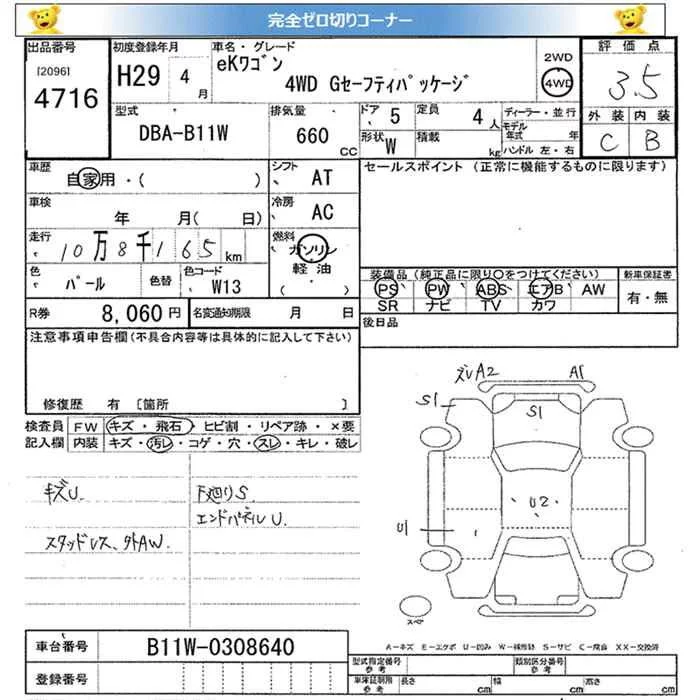 完全ゼロ切りコーナー
出品番号
[2096]
4716
初度登録年月
H29 4月
車名・グレード
eKワゴン
4WD Gセーフティパッケージ
2WD
4WD
評価点
3.5
外装 内装
C B
型式
DBA-B11W
排気量
660 CC
ドア 5
形状 W
定員 4人
積載 kg
ディーラー・並行
モデル年式 年
ハンドル 左・右
車歴
自家用・( )
シフト
AT
セールスポイント (正常に機能するものに限ります)
車検
年 月( 日)
冷房
AC
走行
10万8千165km
燃料
ガソリン
軽油
( ・ )
色
パール
色替
色コード
W13
装備品(純正品に限り○をつけてください)
PS PW ABS エアB AW
SR ナビ TV カワ
新車保証書
有・無
R券 8,060円
名変通知期限 月 日
後日品
注意事項申告欄(不具合内容等は具体的に記入して下さい)
修復歴 有 [箇所 ]
検査員記入欄
FW キズ・飛石・ヒビ割・リペア跡・×要
内装 キズ・汚レ・コゲ・穴・スレ・キレ・破レ
キズU
スタッドレス、外AW.
下廻りS
エンドパネルU.
ズレA2 A1
S1
S1
U2
U1
スペア
A-キズ E-エクボ U-凹み W-補修跡 S-サビ C-腐食 XX-交換済
車台番号 B11W-0308640
登録番号
型式指定番号 参考
類別区分番号 参考
車庫証明用 参考
長さ cm 幅 cm 高さ cm